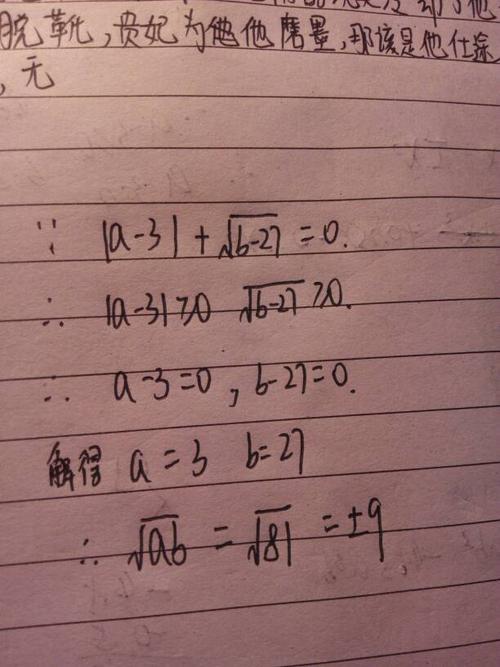 脱靴,贵妃为他他磨墨,那该是他仕途
,无
∵ |a-3| + √(b-27) = 0.
∴ |a-3|≥0 √(b-27) ≥0.
∴ a-3=0, b-27=0.
解得 a=3 b=27
∴ √ab = √81 = ±9